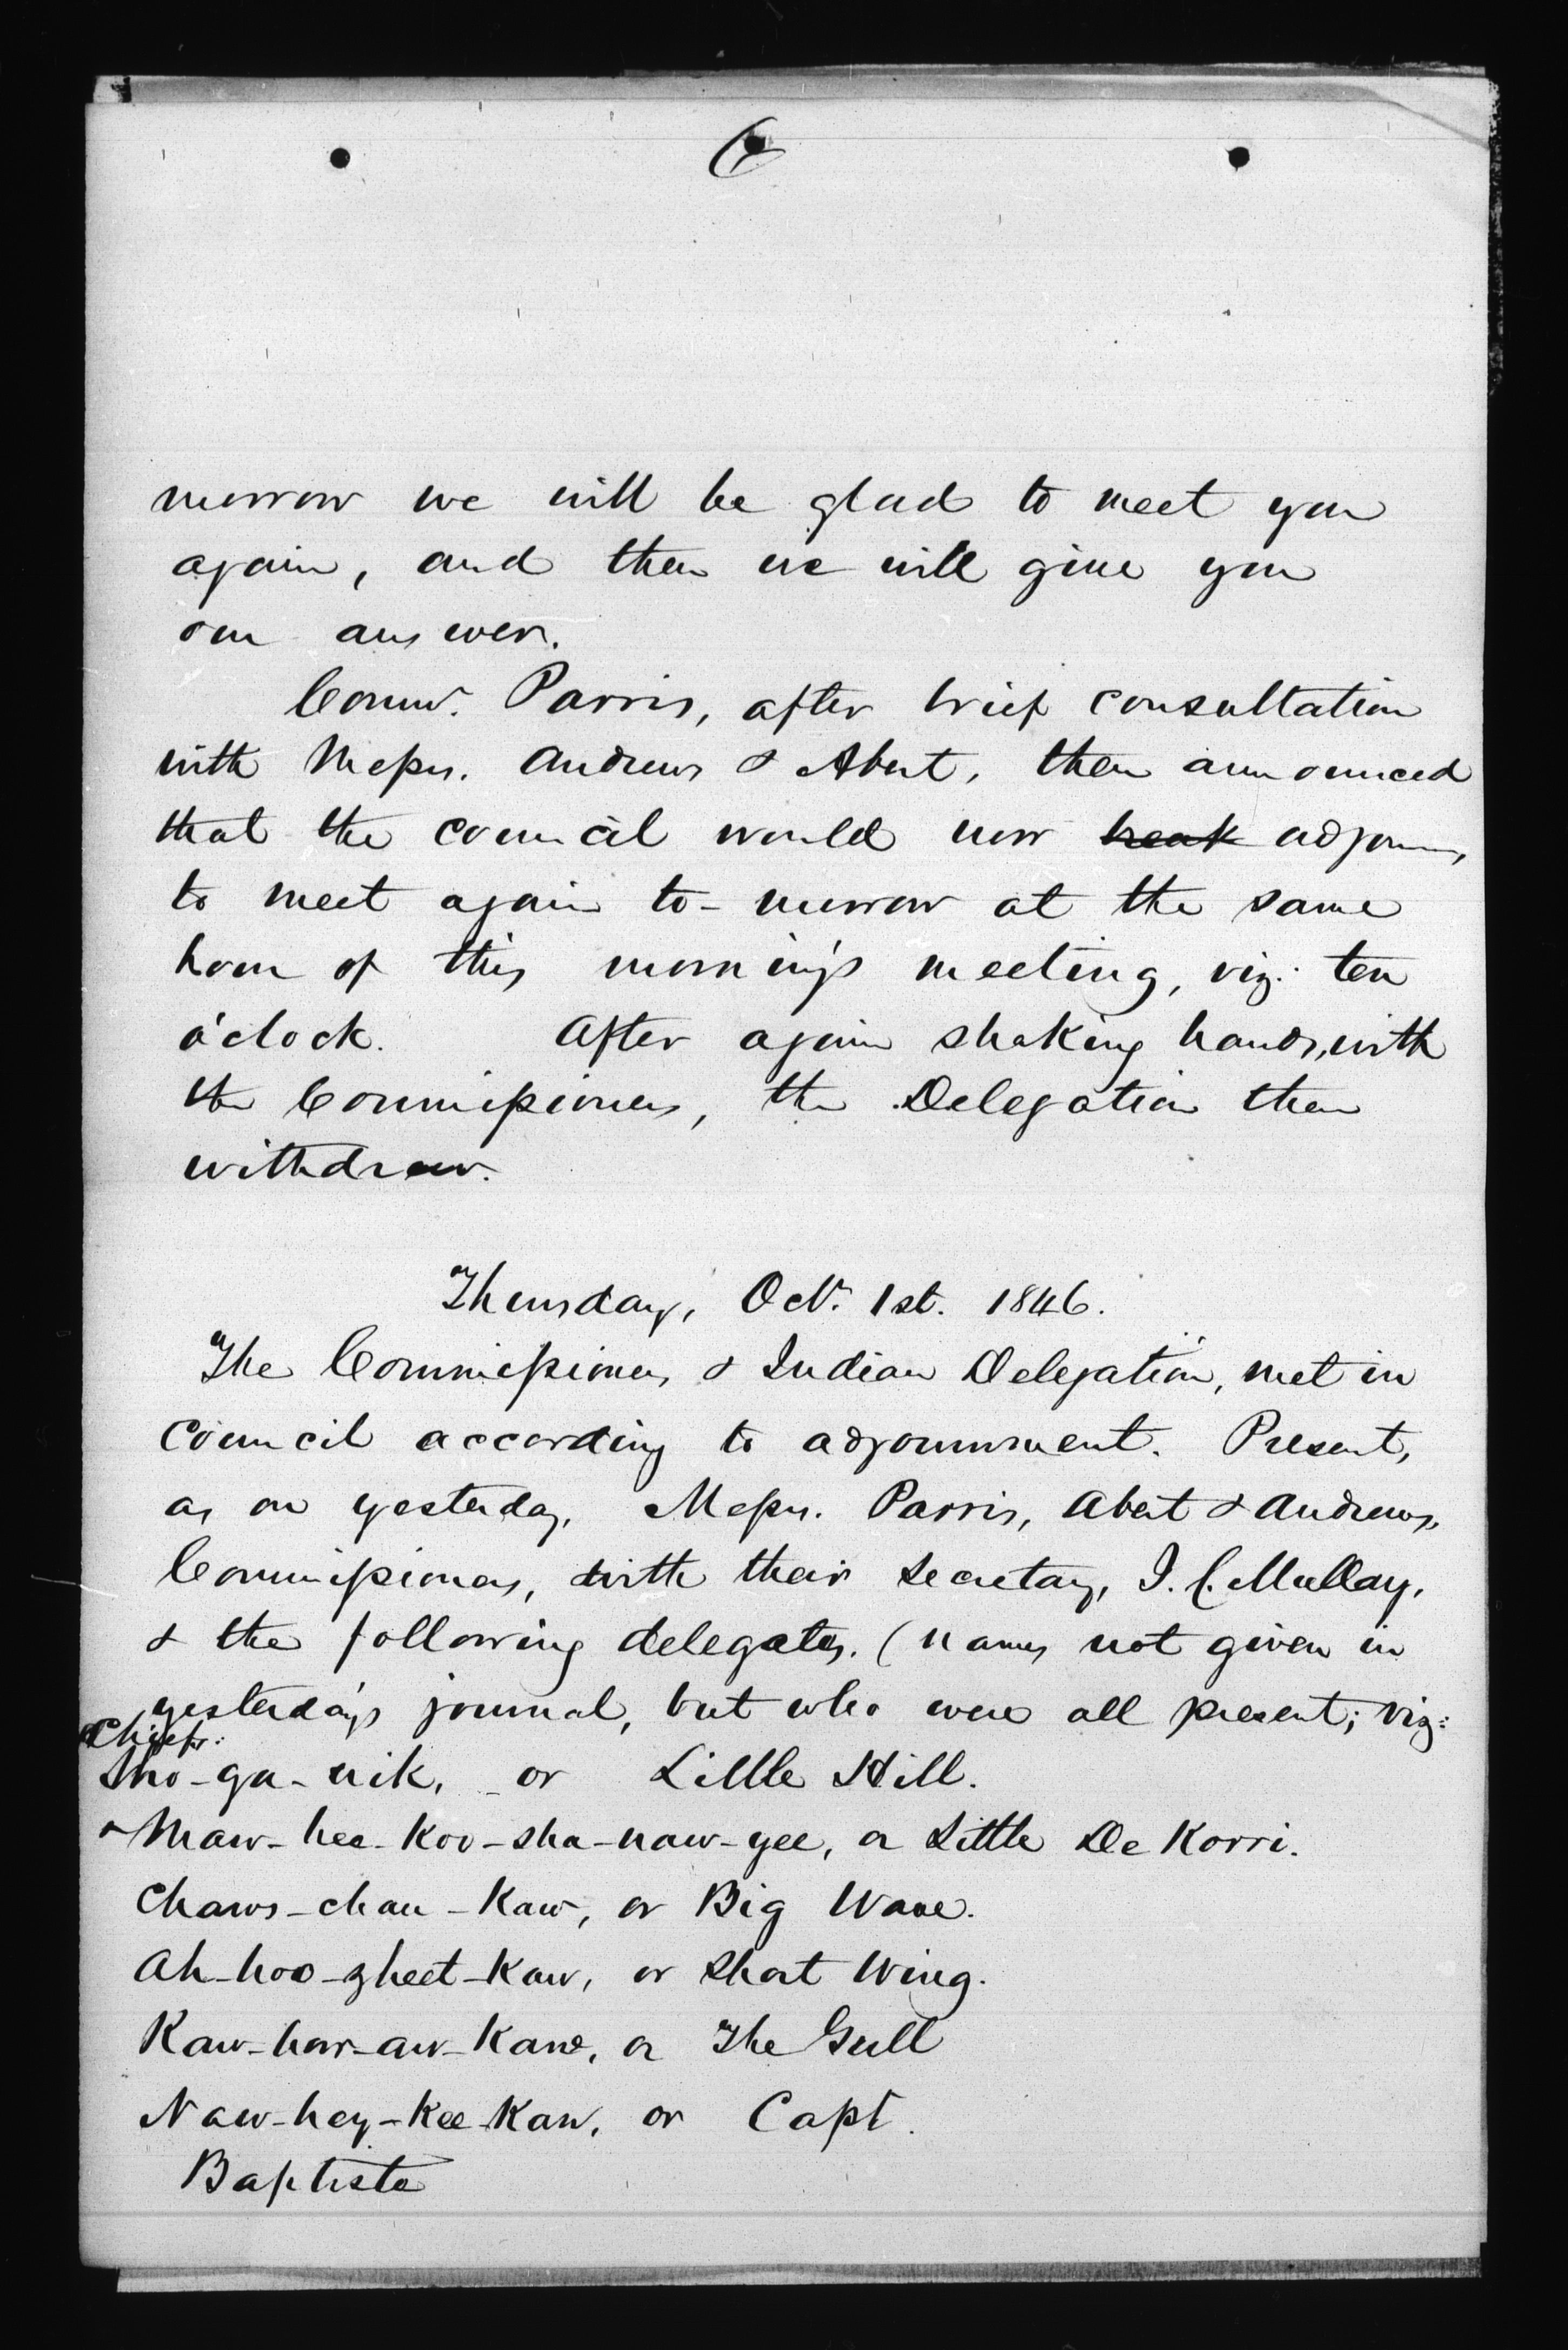 6
morrow we will be glad to meet you
again, and then we will give you
our answer.
Comr. Parris, after brief consultation
with Messrs. Andrews & Abert, then announced
that the council would now break adjourn,
to meet again to-morrow at the same
hour of this morning's meeting, viz: ten
o'clock. After again shaking hands, with
the Commissioners, the Delegation then
withdrew.
Thursday, Oct. 1st. 1846.
The Commissioners & Indian Delegation, met in
Council according to adjournment. Present,
as on yesterday, Messrs. Parris, Abert & Andrews,
Commissioners, with their Secretary, J. C. Mullay,
& the following delegates. (names not given in
yesterday's journal, but who were all present; viz:
Chiefs:
Sho-ga-nik, or Little Hill.
Maw-hee-koo-sha-naw-zee, or Little De Korri.
Chaws-chau-Kaw, or Big Wave.
Ah-hoo-zheet-Kaw, or Short Wing.
Kaw-how-aw-Kaw, or The Gull
Naw-hey-Kee-Kaw, or Capt.
Baptiste